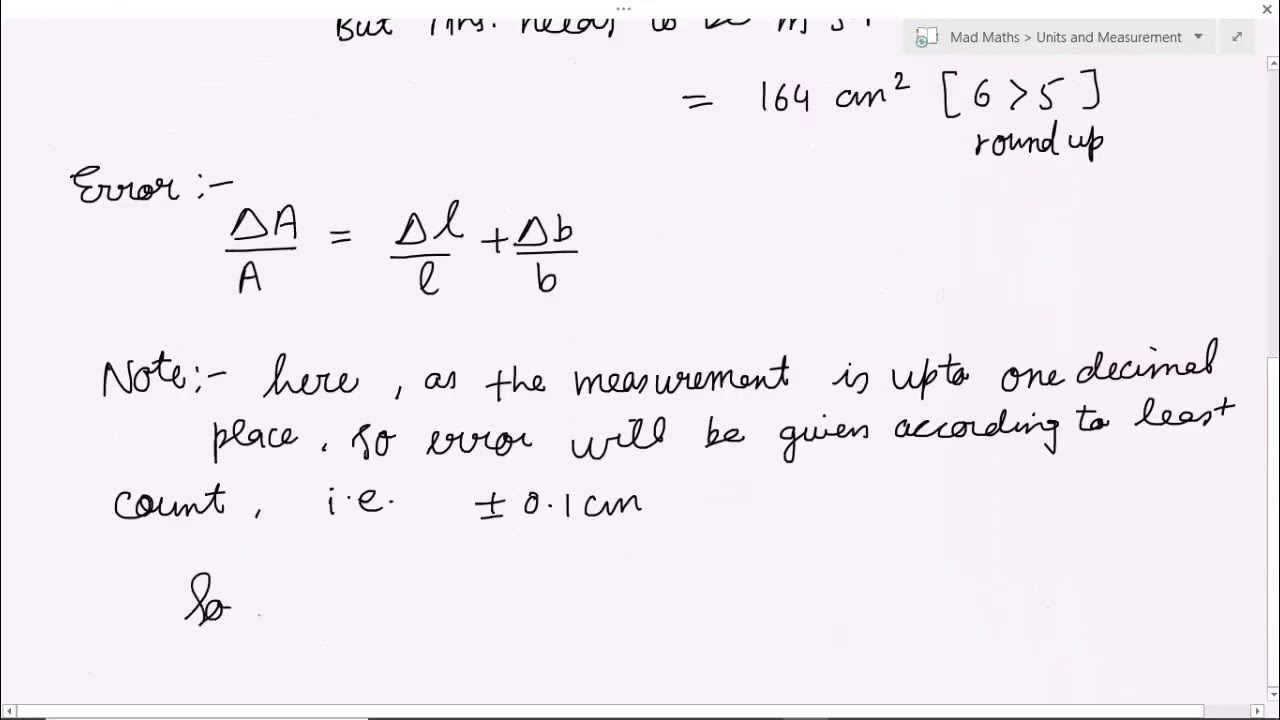 But Ans. needs to be in 3
Mad Maths > Units and Measurement
= 164 cm² [6 > 5]
round up
Error :-
ΔA/A = Δl/l + Δb/b
Note:- here, as the measurement is upto one decimal
place, so error will be given according to least
count, i.e. ± 0.1 cm
So